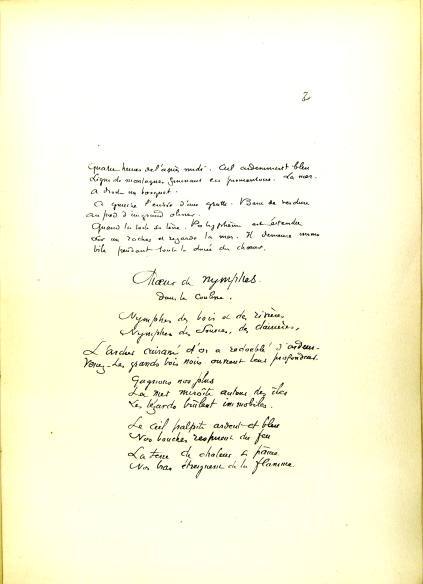 2
Quatre heures de l'après midi. Ciel ardemment bleu
Ligne de montagnes finissant en promontoire. La mer.
A droite un bosquet.
A gauche l'entrée d'une grotte. Banc de verdure
au pied d'un grand olivier.
Quand la toile se lève. Polyphème est étendu
sur un rocher et regarde la mer. Il demeure immo
bile pendant toute la durée du chœur.
Chœur de nymphes
dans la coulisse.
Nymphes des bois et des rivières
Nymphes des sources, des clairières,
L'archer cuirassé d'or a redoublé d'ardeur
Venez. Les grands bois nous ouvrent leur profondeur.
Gagnons nos
La mer miroite autour des îles
Les lézards brûlent immobiles.
Le ciel palpite ardent et bleu
Nos bouches respirent du feu
La terre de chaleur se pâme
Nos bras étreignent de la flamme.